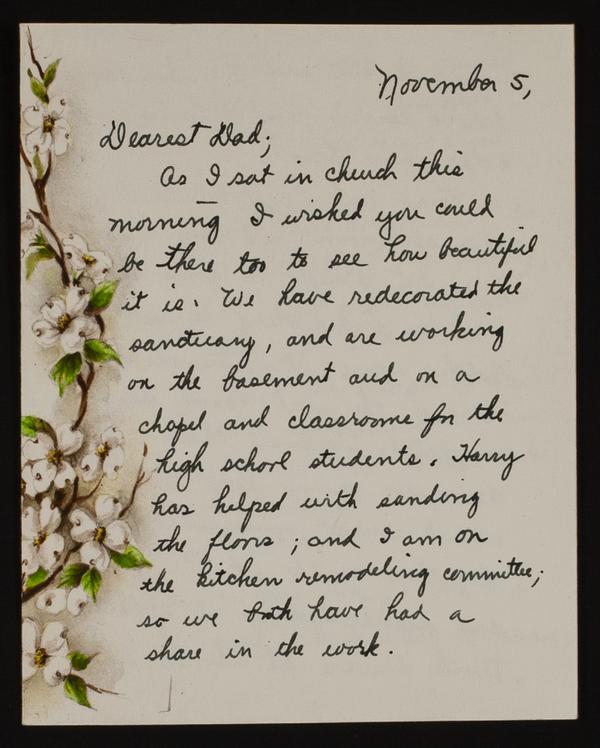 November 5,
Dearest Dad;
As I sat in church this
morning I wished you could
be there too to see how beautiful
it is. We have redecorated the
sanctuary, and are working
on the basement and on a
chapel and classrooms for the
high school students. Harry
has helped with sanding
the floors; and I am on
the kitchen remodeling committee;
so we both have had a
share in the work.